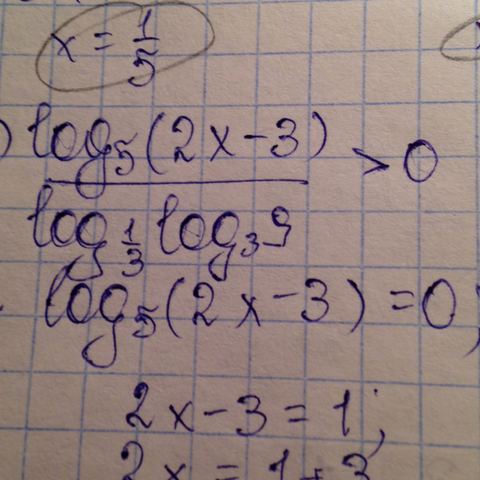 x = 1/5
) log₅(2x-3) / log_{1/3} log₃9 > 0
log₅(2x-3) = 0;
2x-3 = 1;
2x = 1+3